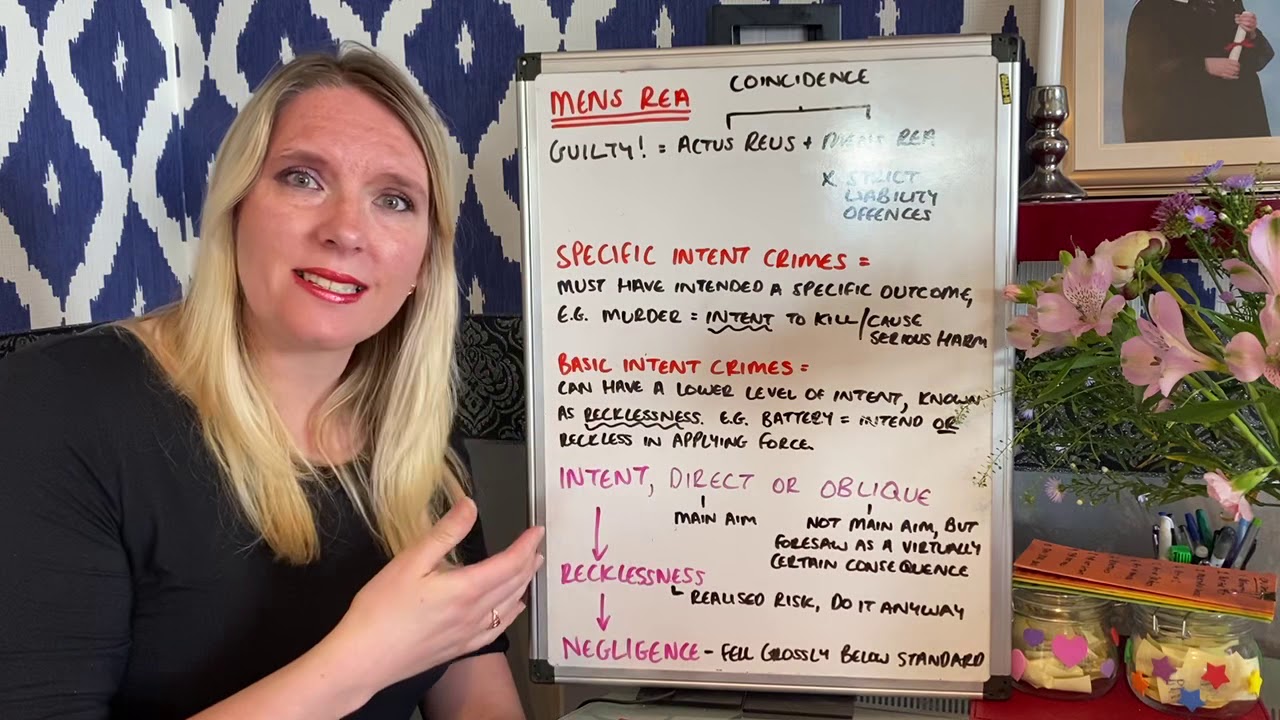 COINCIDENCE
MENS REA
GUILTY! = ACTUS REUS + MENS REA
X STRICT
LIABILITY
OFFENCES
SPECIFIC INTENT CRIMES =
MUST HAVE INTENDED A SPECIFIC OUTCOME,
E.G. MURDER = INTENT TO KILL/CAUSE
SERIOUS HARM
BASIC INTENT CRIMES =
CAN HAVE A LOWER LEVEL OF INTENT, KNOWN
AS RECKLESSNESS. E.G. BATTERY = INTEND OR
RECKLESS IN APPLYING FORCE.
INTENT, DIRECT OR OBLIQUE
MAIN AIM
NOT MAIN AIM, BUT
FORESAW AS A VIRTUALLY
CERTAIN CONSEQUENCE
RECKLESSNESS
REALISED RISK, DO IT ANYWAY
NEGLIGENCE - FELL GROSSLY BELOW STANDARD